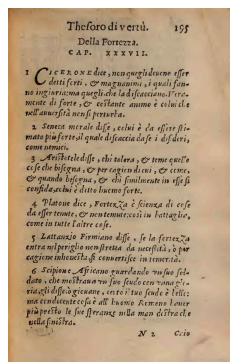 Thesoro di vertù. 195
Della Fortezza.
CAP. XXXVII.
1 CICERONE dice, non quegli deueno esser
detti forti, & magnanimi, i quali fan-
no ingiuria: ma quegli che la discacciano. Vera-
mente di forte, & costante animo è colui che
nell'auuersità non si perturba.
2 Seneca morale disse, colui è da esser sti-
mato piu forte, il qual discaccia da se i desideri,
come nemici.
3 Aristotele disse, chi tolera, & teme quelle
cose che bisogna, & per cagion di cui, & come,
& quando bisogna, & chi similmente in esse si
confida, colui è detto huomo forte.
4 Platone dice, Fortezza è scienza di cose
da esser tenute, & non temute: così in battaglia,
come in tutte l'altre cose.
5 Lattanzio Firmiano disse, se la fortezza
entra nel periglio non stretta da necessità, ò per
cagione inhonesta, si conuertisce in temerità.
6 Scipione Africano guardando un suo sol-
dato, che mostraua un suo scudo con uana glo-
ria, gli disse: ò giouane, certo il tuo scudo è bello:
ma conducente cosa è all'huomo Romano hauer
piu presto le sue speranze nella man destra che
nella sinistra.
N 2 Ccio